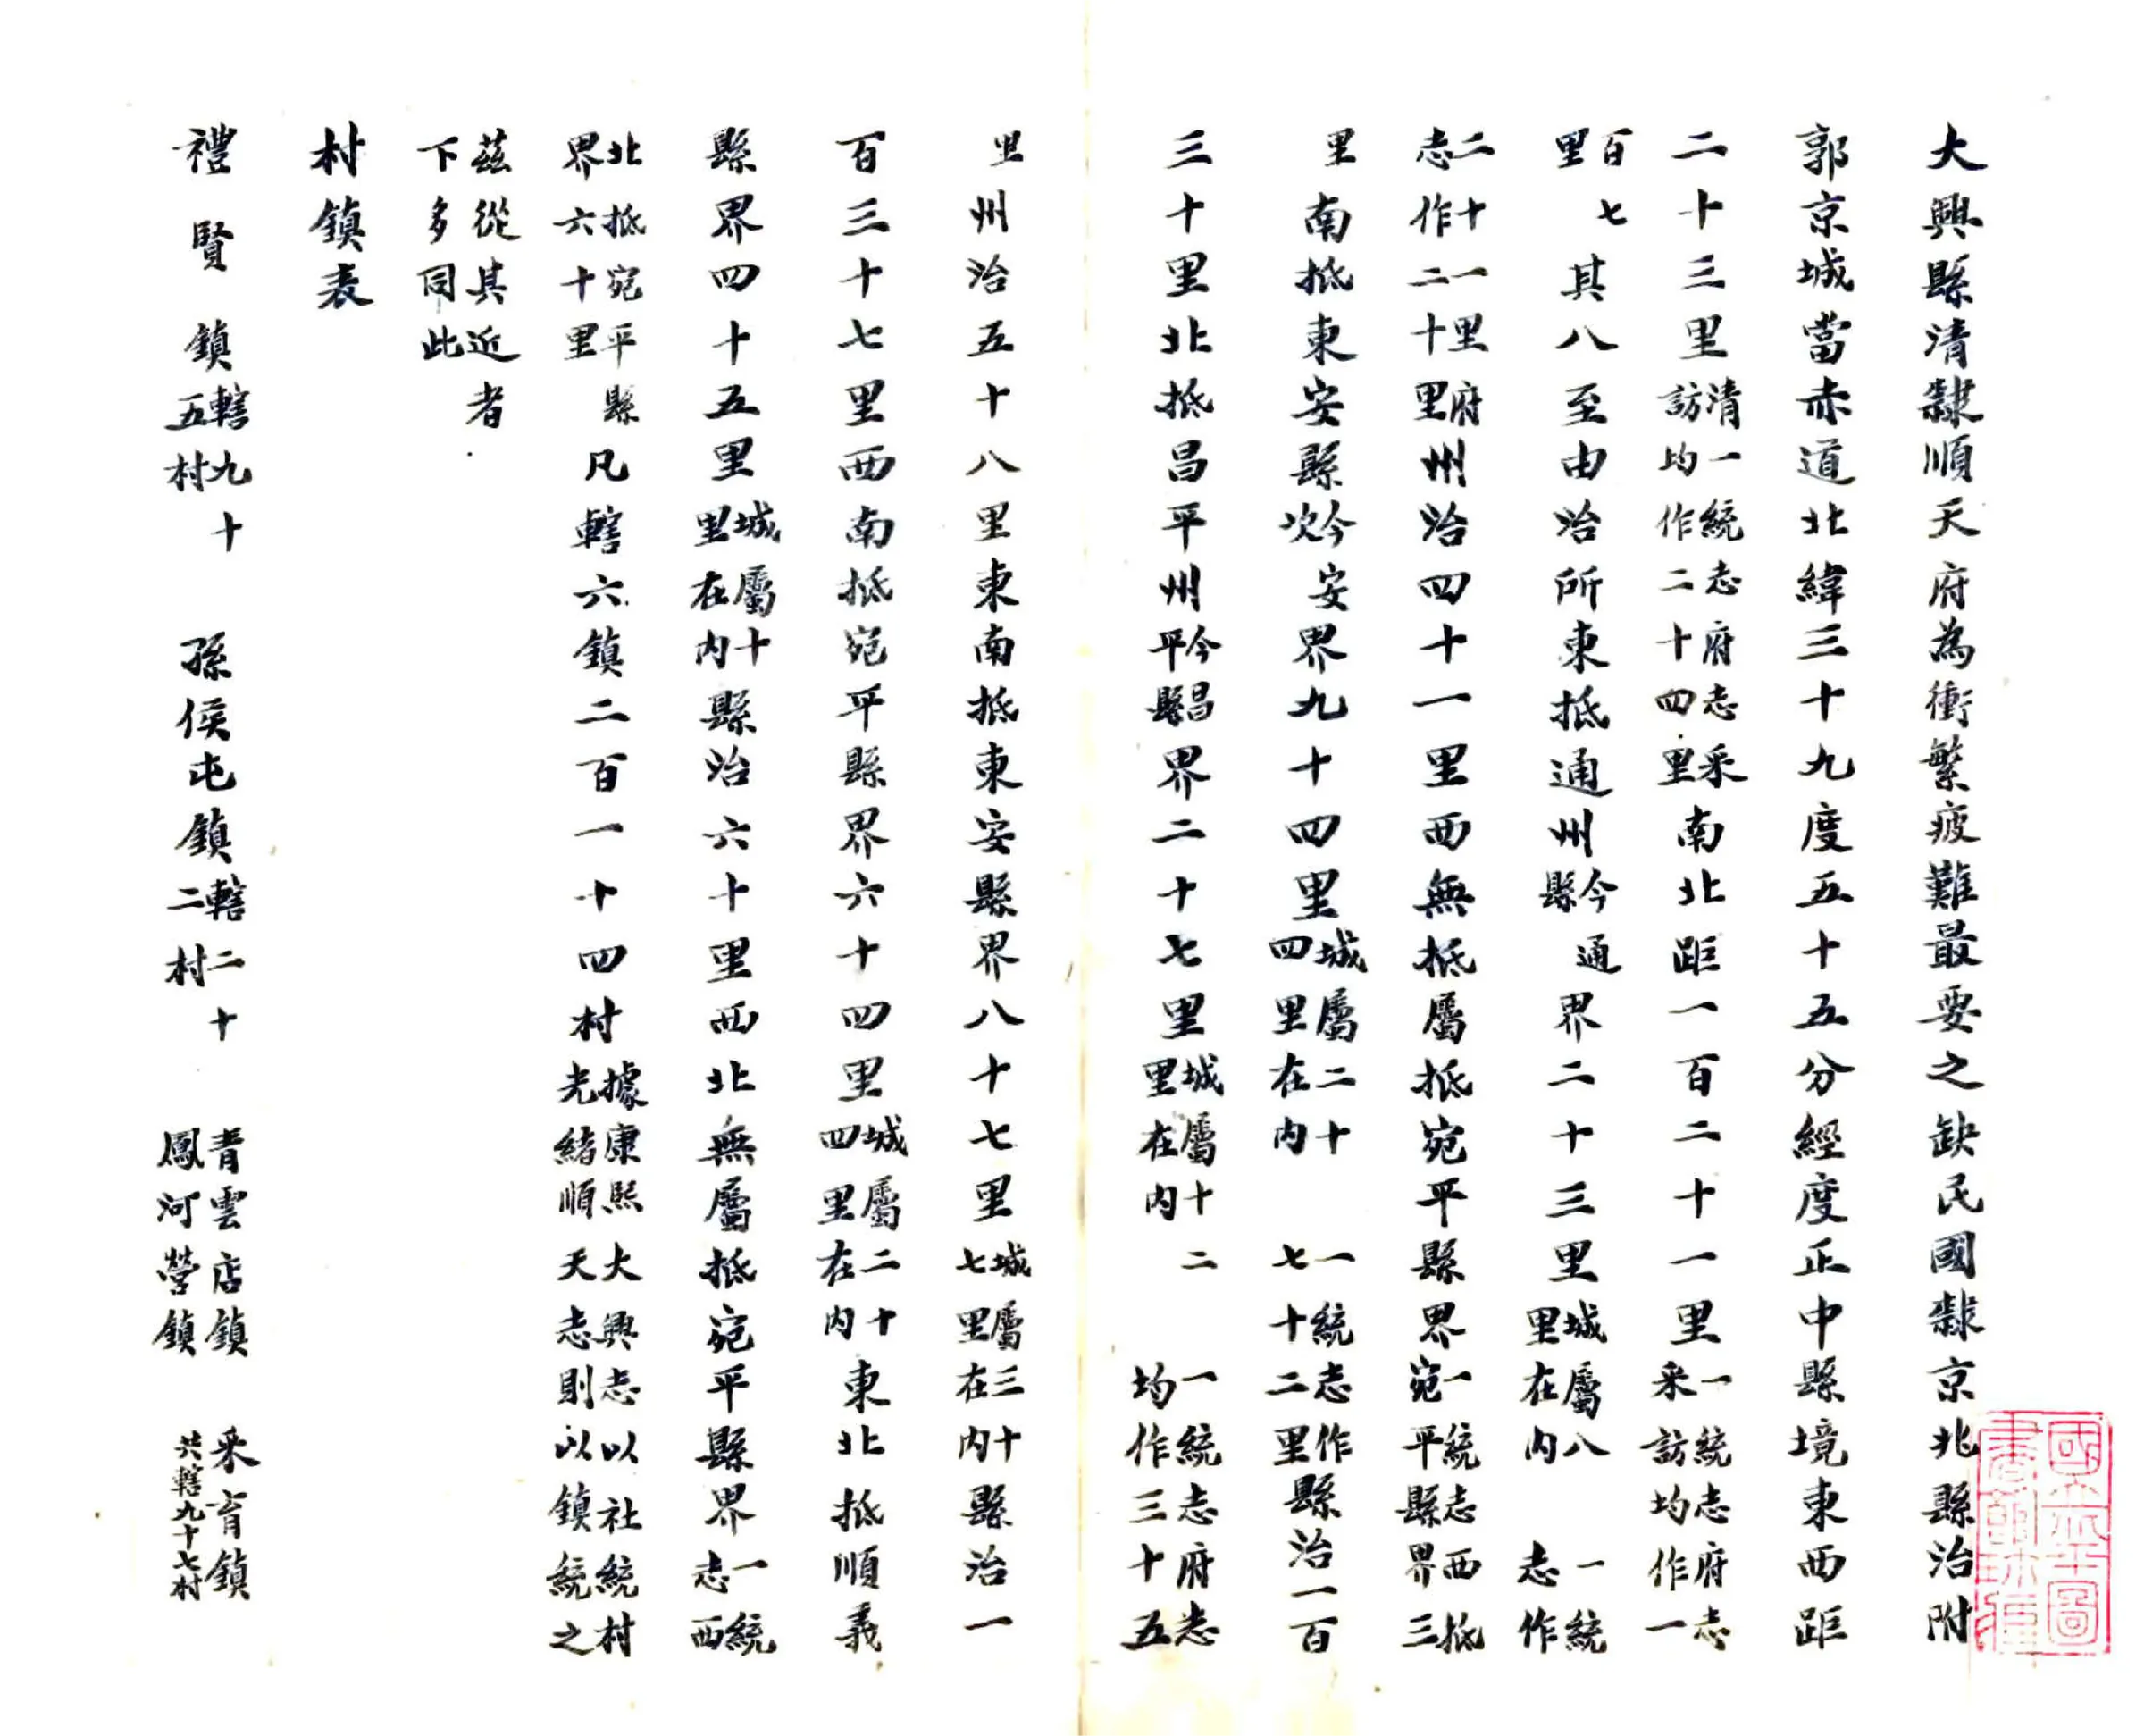 大興縣清隸順天府為衝繁疲難最要之缺民國隸京兆縣治附
郭京城當赤道北緯三十九度五十五分經度正中縣境東西距
二十三里清一統志府志采訪均作二十四里南北距一百二十一里一統志府志采訪均作一
百七里其八至由治所東抵通州今通縣界二十三里城屬八里在內一統志作
二十一里府志作二十里州治四十一里西無抵屬抵宛平縣界一統志西抵宛平縣界三
里南抵東安縣今安次界九十四里城屬二十四里在內一統志作七十二里縣治一百
三十里北抵昌平州今昌平縣界二十七里城屬十二里在內一統志府志均作三十五
里州治五十八里東南抵東安縣界八十七里城屬三十七里在內縣治一
百三十七里西南抵宛平縣界六十四里城屬二十四里在內東北抵順義
縣界四十五里城屬十里在內縣治六十里西北無屬抵宛平縣界一統志西
北抵宛平縣界六十里凡轄六鎮二百一十四村據康熙大興志以社統村光緒順天志則以鎮統之
茲從其近者下多同此
村鎮表
禮賢鎮轄九十五村 孫侯屯鎮轄二十二村 青雲店鎮鳳河營鎮 采育鎮共轄九十七村
國立北平圖書館珍藏